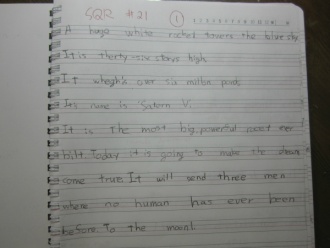 SQR #21 1
A huge white rocket towers the blue sky
It is therty-six storys high.
It wheghs over six million
Its name is Saturn V.
It is The most big, powerful ever
bilt. Today it is going to make the dream
come true. It will send three men
where no human has ever been
before. To the moon!